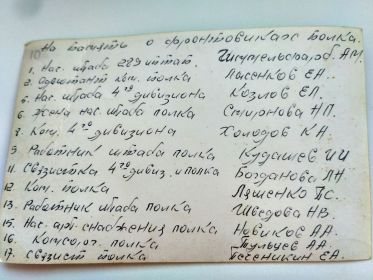 На память о фронтовиках полка.
1. Нас. штаба 289 иптап.
2. Адъютант ком. полка Лысенков ЕА.
5. Нас. штаба 4го дивизиона Козлов ЕП.
6. Жена нас. штаба полка Смирнова НП.
8. Ком. 4го дивизиона Холодов КА.
9. Работник штаба полка Кудашев ИИ
11. Связистка 4го дивиз. и полка Богданова ЛН
12. Ком. полка Ляшенко ПС.
13. Работник штаба полка Шведова НВ.
15. Нас. арт. снабжения полка Новиков АА.
16. Комсорг. полка Тульцев АА.
17. Связист полка Печеникин ЕА.